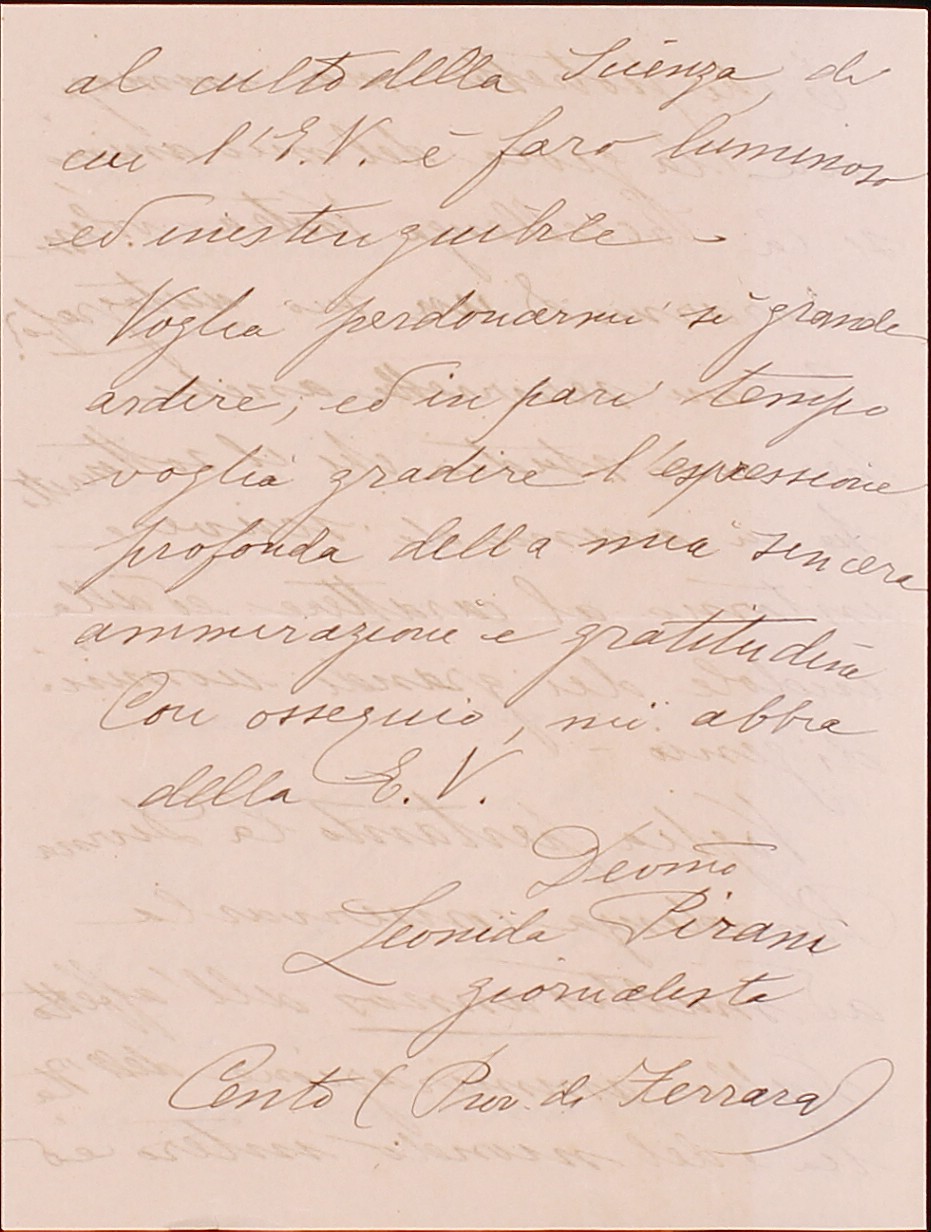 al culto della Scienza, di
cui l'E.V. è faro luminoso
ed inestinguibile -
Voglia perdonarmi sì grande
ardire, ed in pari tempo
voglia gradire l'espressione
profonda della mia sincera
ammirazione e gratitudine
Con ossequio, mi abbia
della E. V.
Devmo
Leonida Pirani
giornalista
Cento (Prov. di Ferrara)